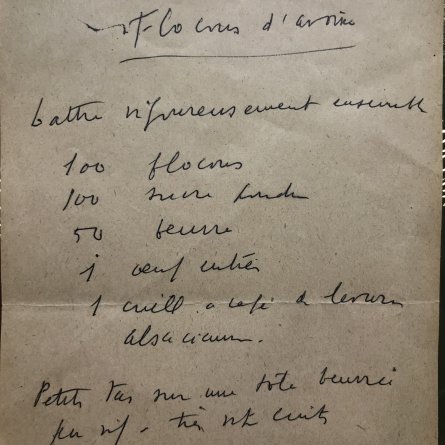 Flocons d'avoine
battre vigoureusement ensemble
100 flocons
100 sucre poudre
50 beurre
1 oeuf entier
1 cuill. a café de levure
alsacienne.
Petits tas sur une tôle beurrée
feu vif - très vite cuits